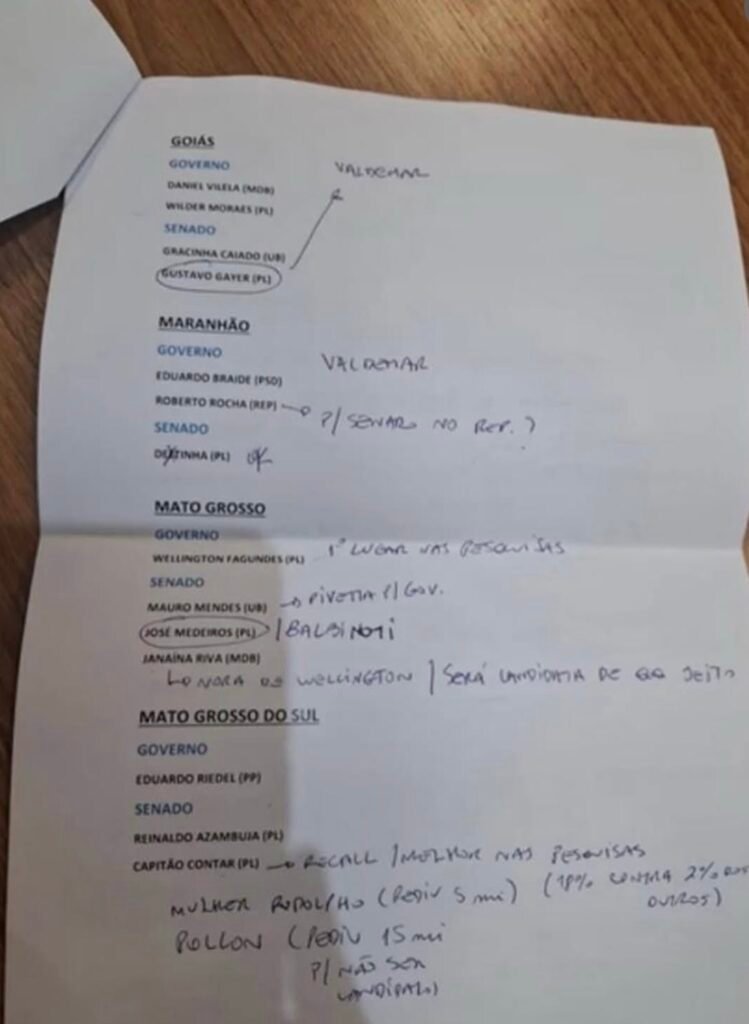 GOIÁS
GOVERNO
DANIEL VILELA (MDB)
VALDEMAR
WILDER MORAES (PL)
SENADO
GRACINHA CAIADO (UB)
GUSTAVO GAYER (PL)
MARANHÃO
GOVERNO
VALDEMAR
EDUARDO BRAIDE (PSD)
ROBERTO ROCHA (REP)
P/ SENADO NO REP. ?
SENADO
DETINHA (PL) OK
MATO GROSSO
GOVERNO
WELLINGTON FAGUNDES (PL) 1º LUGAR NAS PESQUISAS
SENADO
MAURO MENDES (UB) → PIVETTA P/ GOV.
JOSÉ MEDEIROS (PL) / BALBINOTI
JANAÍNA RIVA (MDB)
↳ NORA DO WELLINGTON / SERÁ CANDIDATA DE QQ JEITO
MATO GROSSO DO SUL
GOVERNO
EDUARDO RIEDEL (PP)
SENADO
REINALDO AZAMBUJA (PL)
CAPITÃO CONTAR (PL) → RECALL / MELHOR NAS PESQUISAS
(18% CONTRA 2% DOS OUTROS)
MULHER RODOLFO (PEDIU 5 mi)
POLLON (PEDIU 15 mi
P/ NÃO SER
CANDIDATO)